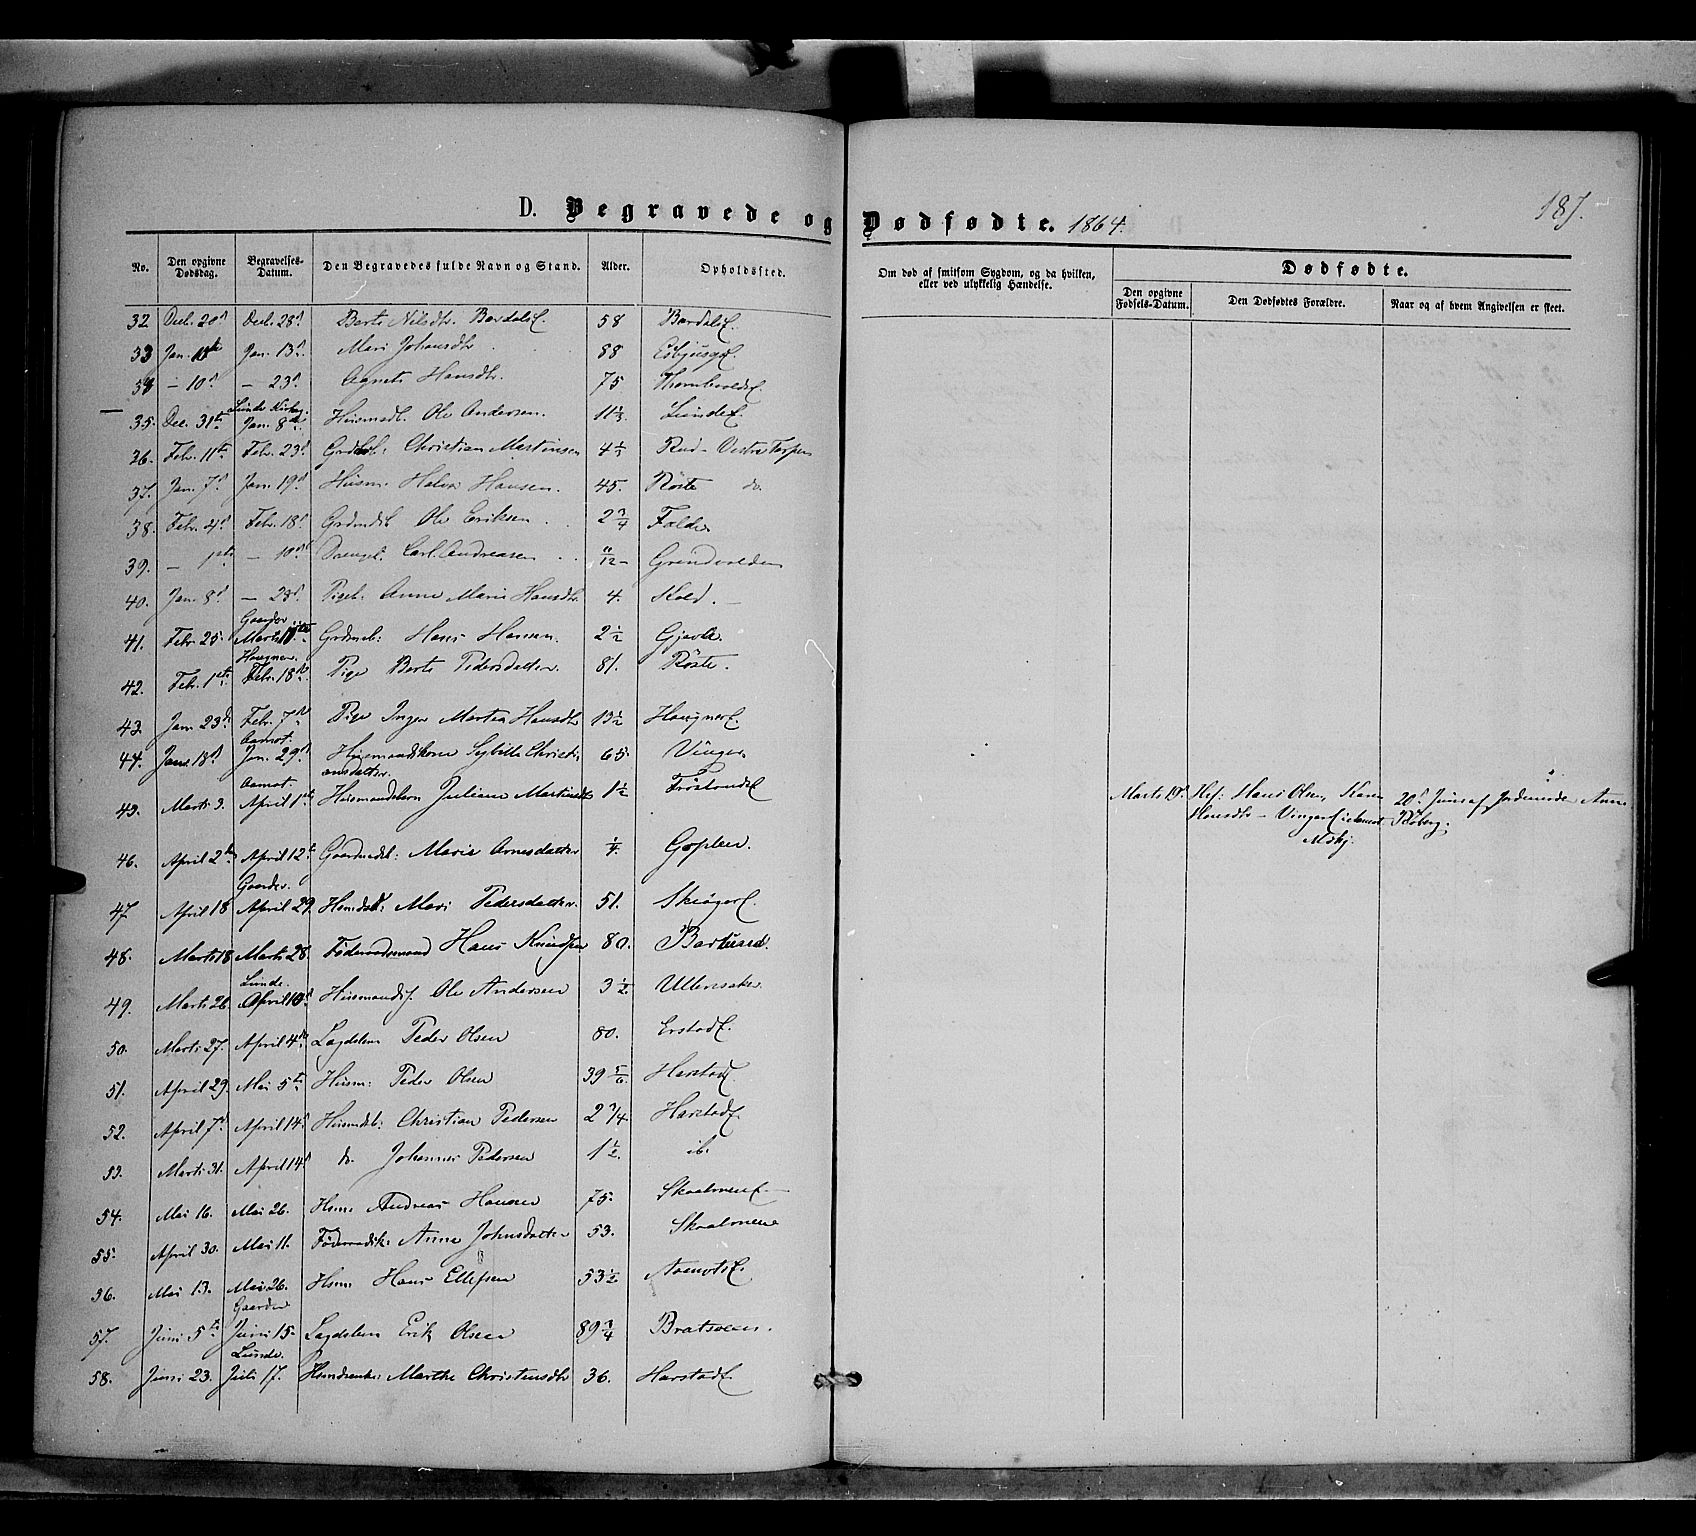 D. Begravede og Dødfødte. 1864.
187.
No. Den opgivne Dødsdag. Begravelses-Datum. Den Begravedes fulde Navn og Stand. Alder. Opholdssted. Om død af smitsom Sygdom, og da hvilken, eller ved ulykkelig Hændelse. Dødfødte.
Den opgivne Fødsels-Datum. Den Dødfødtes Forældre. Naar og af hvem Angivelsen er skeet.
32 Dec. 20d Dec. 28d Berte Nilsdtr. 58
33 Jan. Jan. 13d Mari Johansdtr 88
34 – 10d – 23d Agnete Hansdtr. 75
35. Dec. 31te Lunde Kirkeg: Jan. 8de Ole Andersen. 11 1/3 Lundef.
36. Febr. 11te Febr. 23d Christian Martinsen 4 1/2 Rud – Vestre Torpen
37. Jan. 7d Jan. 19d Husm. Halvor Hansen. 45. Röste do.
38. Febr. 4d Febr. 18d Ole Eriksen. 2 3/4
39. – 1ste – 10d Carl Andreasen 11/12 Grundvolden
40. Jan. 8d – 23d Pigeb. Anne Marie Hansdtr 4.
41. Febr. 25. Gaarder Marts Hans Hansen. 2 1/2 Gjøvle
42. Febr. 1ste Haugner Febr. 18de Pige Berte Pedersdatter. 81. Röste.
43 Jan. 23d Febr. 7de Pige Inger Martea Hansdtr 13 1/2 Haugnerf.
44. Jan. 18d Aamot. Jan. 29d Husmandskone Sybille Christiansdatter. 65. Vinger
45. Marts 3. Aamot. April 1ste Husmandsbarn Juliane Martinsdtr 1 1/2
Marts 19d Hans Olsen, Karen Hansdtr – 20d Juni af Jordemoder Anne Röberg.
46. April 2d April 12te Gaardmdsb: Marie Arnesdatter 1/4. Goplen.
47 April 18 Gaarder. April 29. Mari Pedersdatter. 51. Skiagerf.
48. Marts 18 Marts 28. Föderaadsmand Hans Knudsen 80.
49. Marts 26. Lunde. April 10d Ole Andersen 3 1/2 Ullensaker
50. Marts 27. April 4de Lægdslem Peder Olsen 80. Erstadf.
51. April 29. Mai 5te Husm: Peder Olsen 39 5/6 Harstadf.
52. April 7d April 14d Husmdsb: Christian Pedersen 2 3/4. Harstadf.
53. Marts 31. April 14d do. Johannes Pedersen 1 1/2 ib.
54. Mai 16. Mai 26. Husm: Andreas Hansen 75.
55. April 30. Mai 11. Föderaadsk: Anne Johnsdatter 53.
56. Mai 13. Mai 26. Husm: Hans Ellefsen 53 1/2 Aamotsf.
57. Juni 5te Gaarder Juni 15. Lægdslem Erik Olsen 89 3/4 Bratsveen.
58. Juni 23. Lunde. Juli 17. Marthe Christensdtr 36. Harstadf.